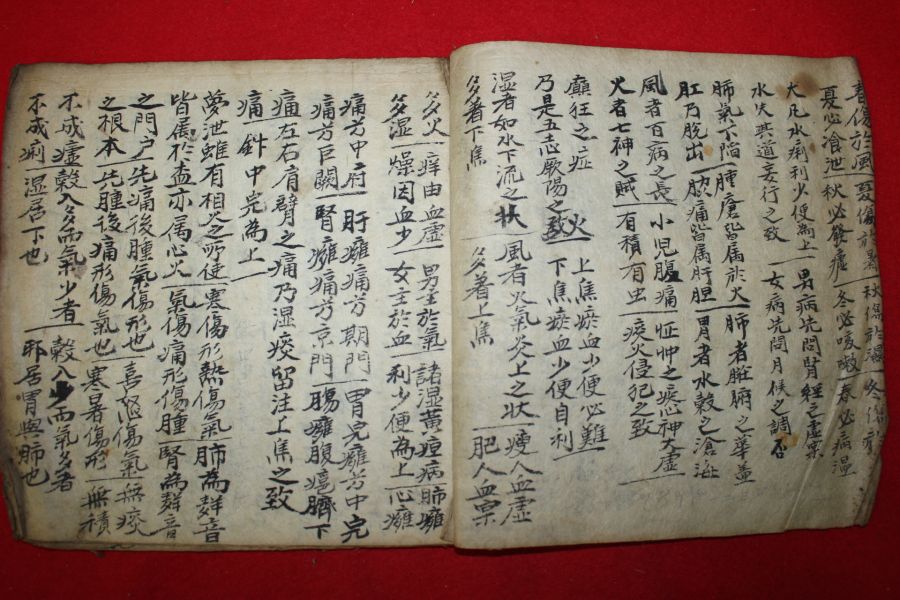 春傷於風 夏傷於暑 秋傷於濕 冬傷於寒
夏必飧泄 秋必發瘧 冬必咳嗽 春必病溫
大凡水痢利小便為上 男病先問腎經之虛
水失其道妄行之致 女病先問月候之調否
肺氣下陷 腫瘡皆属於火 肺者脏腑之華盖
肛乃脫出 脇痛皆属肝胆 胃者水穀之滄海
風者百病之長 小児腹痛 怔忡之疾心神大虛
火者七神之賊 有積有虫 痰火侵犯之致
癲狂之症 火 上焦瘀血少便必難
乃是五志厥陽之致 下焦瘀血少便自利
湿者如水下流之状 風者炎氣炎上之状 瘦人血虛
多著下焦 多著上焦 肥人血
多火 痒由血虛 男主於氣 諸湿黄疸病 肺癰
多湿 燥因血少 女主於血 利少便為上 心癰
痛方中府 肝癰痛方期門 胃完癰方中完
痛方巨闕 腎癰痛方京門 腸癰腹痛臍下
痛左右肩臂之痛乃湿痰留注上焦之致
痛 針中完為上
夢泄雖有相火之所使 寒傷形熱傷氣 肺為聲音
皆属於盃亦属心火 氣傷痛形傷腫 腎為聲音
之門户 先痛後腫氣傷形也 喜怒傷氣 無痰
之根本 先腫後痛形傷氣也 寒暑傷形 無積
不成瘧 穀入多而氣少者 穀入少而氣多者
不成痢 湿居下也 邪居胃與肺也